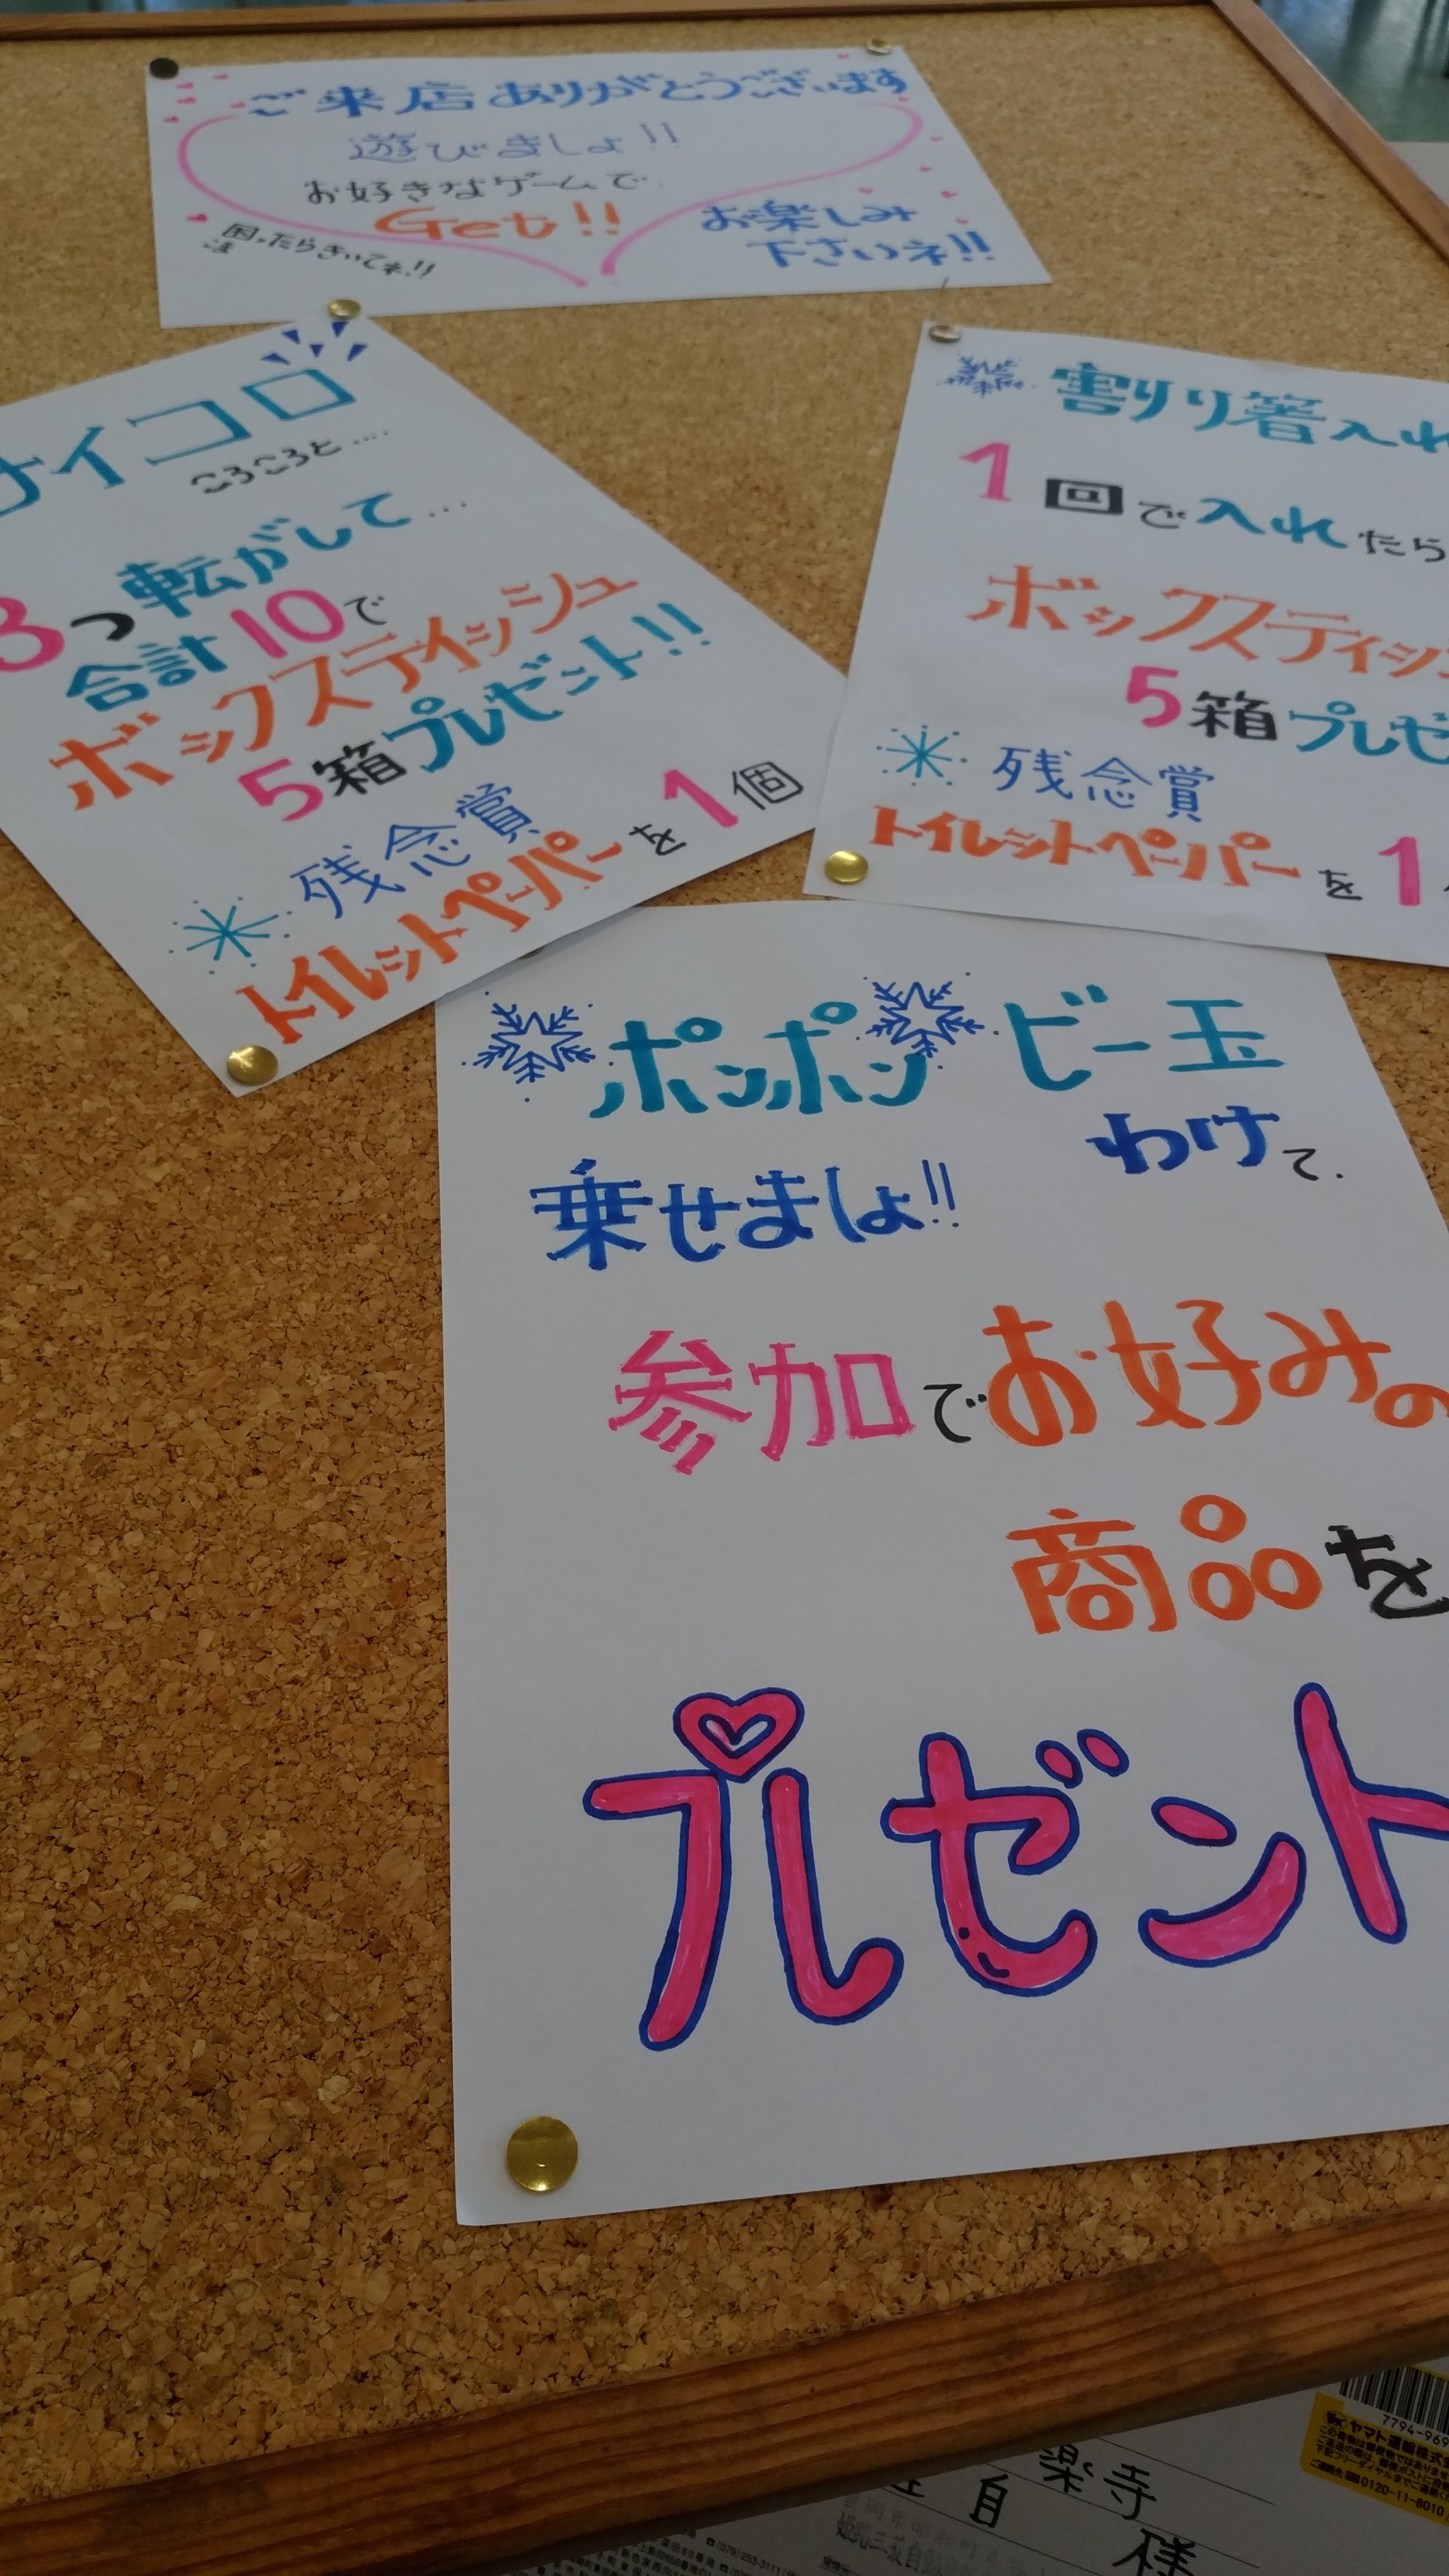 ご来店ありがとうございます
遊びましょ!!
お好きなゲームで
Get!!
お楽しみ
下さいネ!!
困ったらきいてネ!!
サイコロ
ころころと....
3つ転がして...
合計10で
ボックスティッシュ
5箱プレゼント!!
残念賞
トイレットペーパーを1個
割り箸入れ
1回で入れたら
ボックスティッシ
5箱プレゼ
残念賞
トイレットペーパーを1
ポンポン ビー玉
わけて.
乗せましょ!!
参加でお好みの
商品を
プレゼント
7794-969
ヤマト運輸株式
0120-11-8010
楽寺
自
様